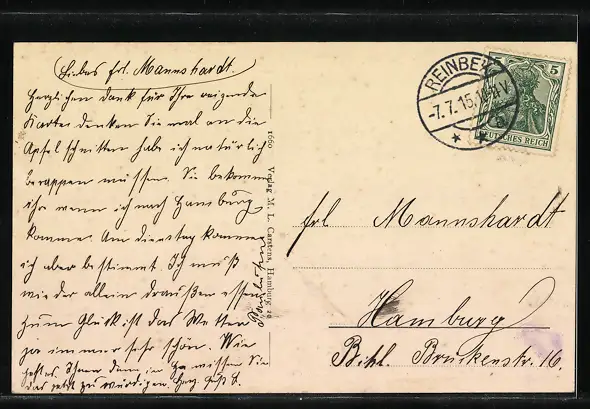 Liebes Frl. Mannshardt.
Herzlichen dank für Ihre reizende
Karte denken Sie mal an die
Apfelschnitten habe ich natürlich
berappen müssen. Sie bekommen
ihr wenn ich nach Hamburg
komme. Am dienstag komme
ich aber bestimmt. Ich muß
wieder allein draußen essen
zum Glück ist das Wetter
ja immer sehr schön. Wie
Ihnen denn im Sie
das jetzt zu würdigen.
1660 Verlag M. L. Carstens, Hamburg 21
REINBEK
-7.7.15.
5
DEUTSCHES REICH
frl Mannshardt
Hamburg
Bihl. Brückenstr. 16.